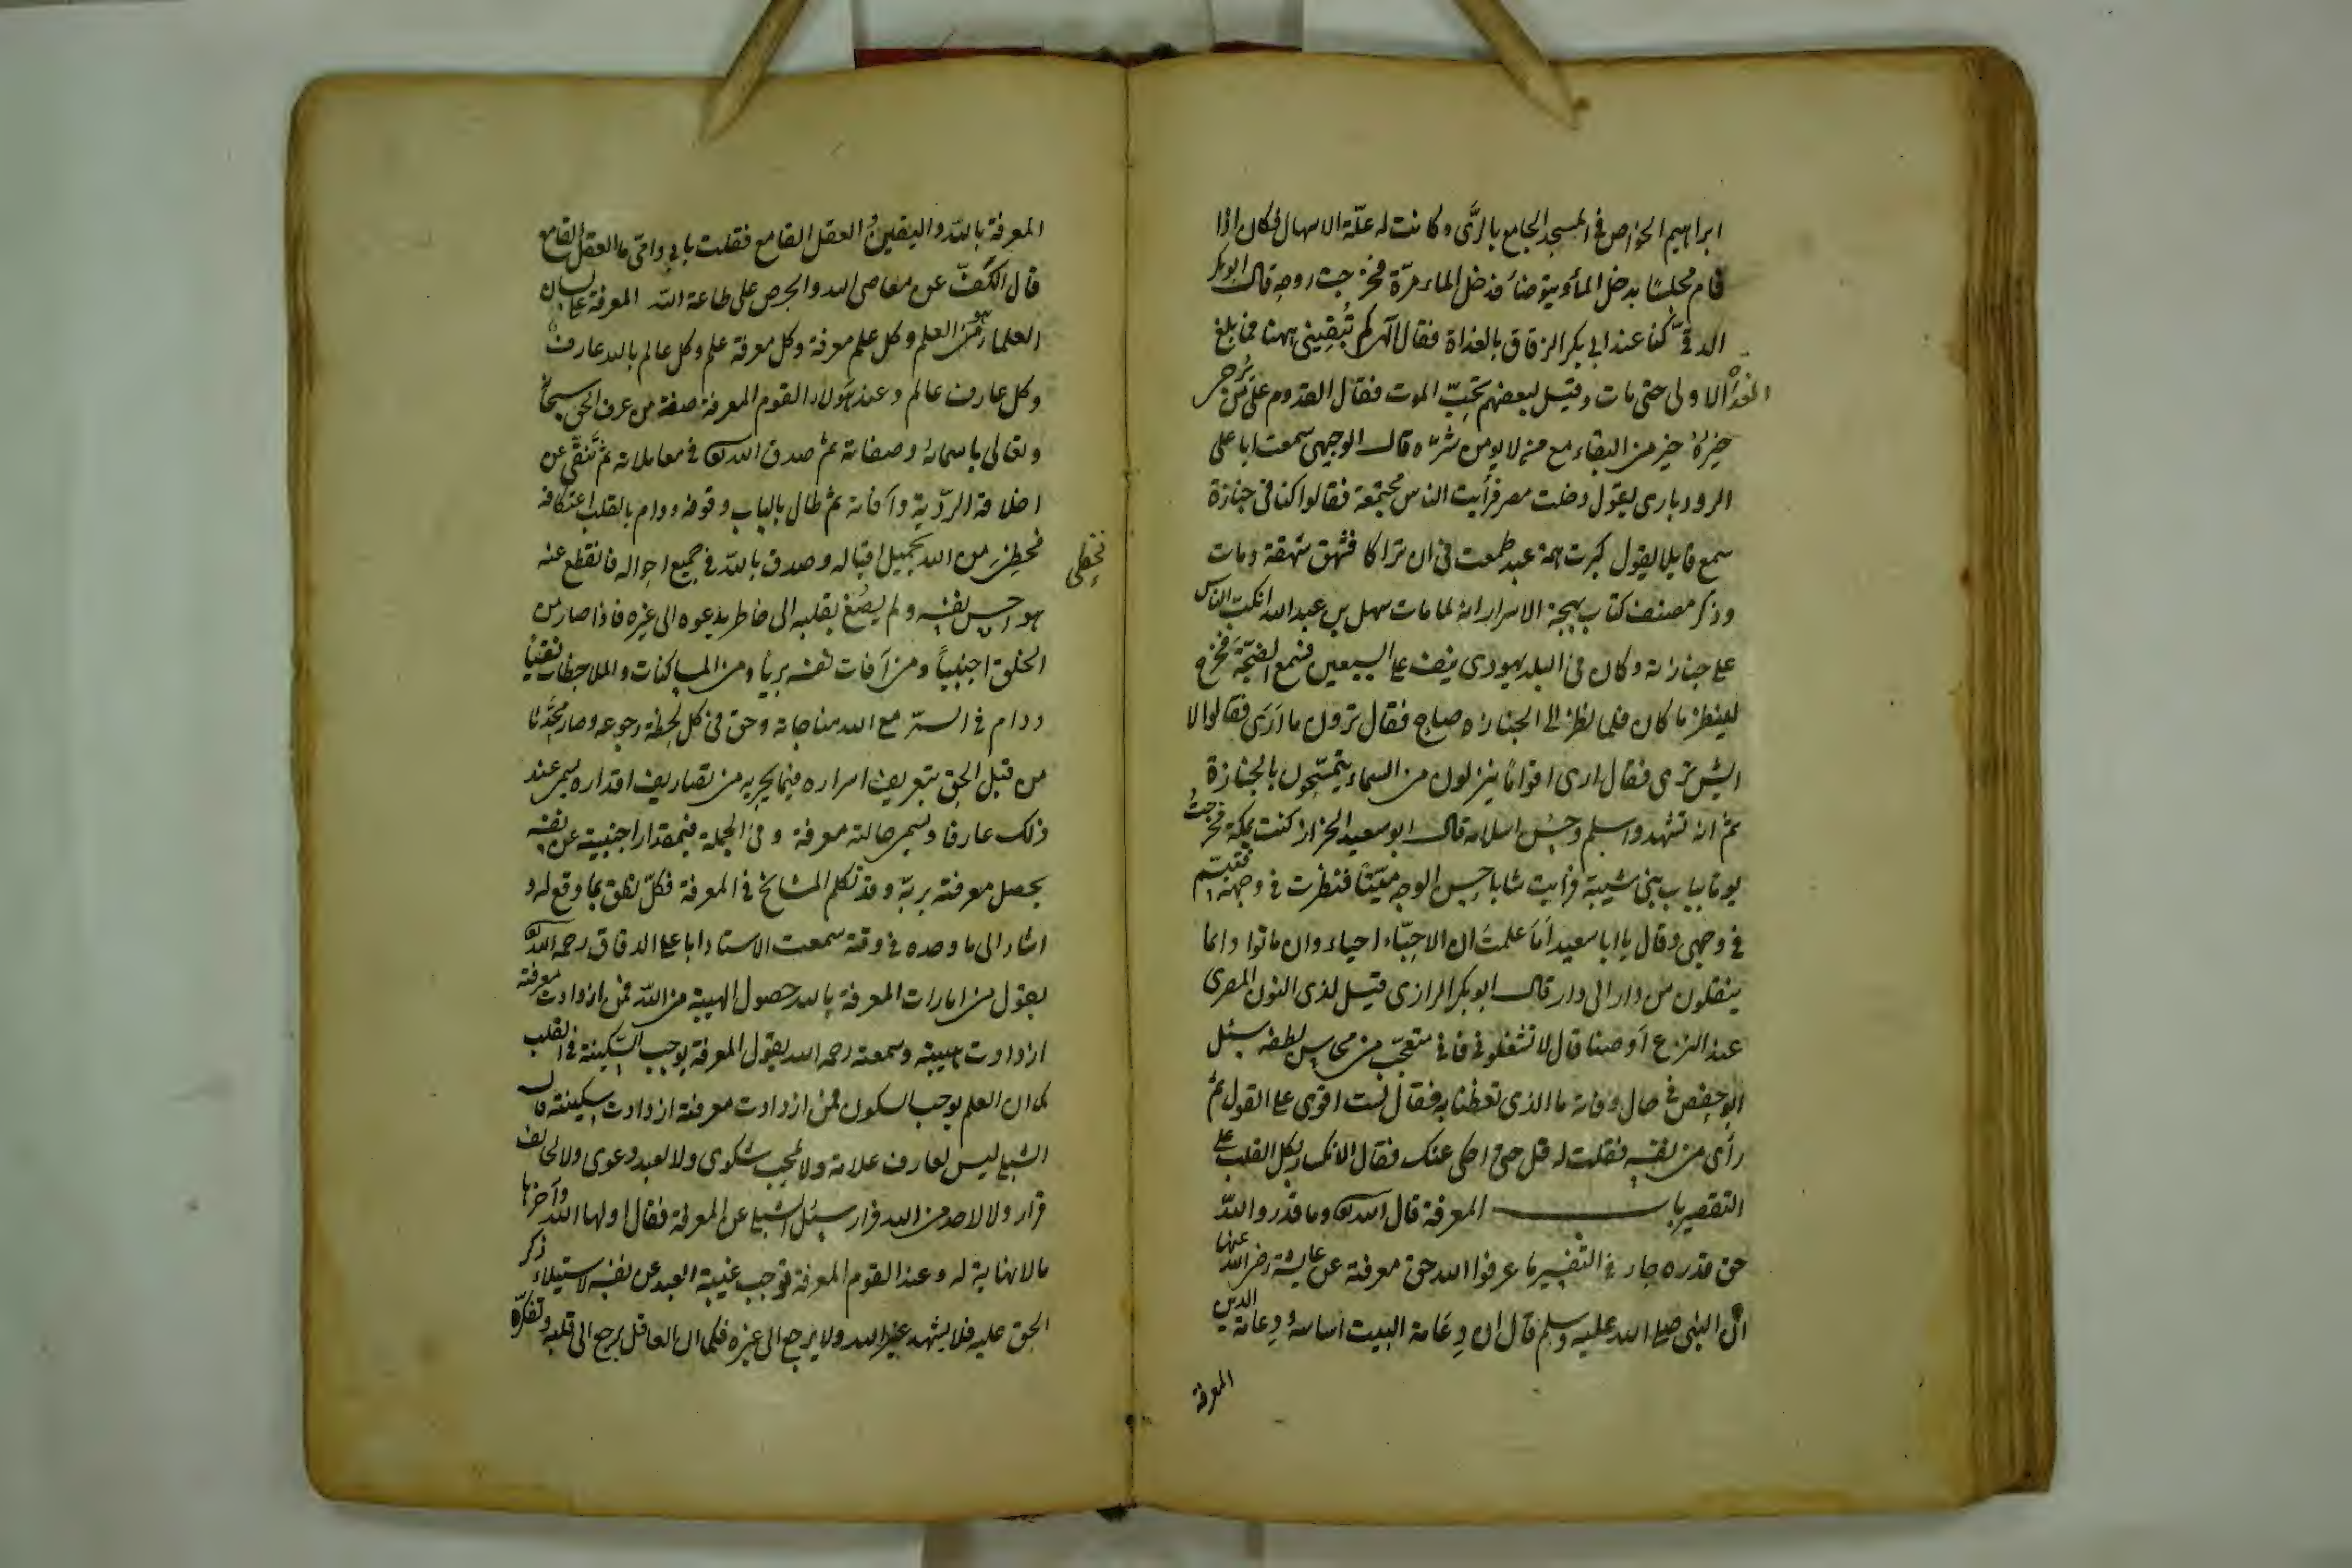 ابراهيم الخواص في المسجد الجامع بالرَّى وكانت له علّة الاسهال فكان اذا
قام مجلسًا يدخل الماء ويتوضأ فدخل الماء مرّة فخرجت روحه قال ابوبكر
الدقى كنا عند ابي بكر الزقاق بالغداة فقال الهى كم تُبقينى ههنا فما بلغ
الغداة الاولى حتى مات وقيل لبعضهم تحبّ الموت فقال القدوم على من يُرجى
خيرُهُ خير من البقاء مع من لا يومن شرّه قال الوجيهى سمعت ابا على
الرودبارى يقول دخلت مصر فرأيت الناس مجتمعة فقالوا كنا في جنازة
سمع قايلا يقول كبرت همة عبد طمعت في ان تراكا فشهق شهقة ومات
وذكر مصنف كتاب بهجة الاسرار انه لما مات سهل بن عبد الله انكبّ الناس
على جنازته وكان في البلد يهودى نيف على السبعين فسمع الضجّة فخرج
لينظر ما كان فلما نظر الى الجنازة صاح فقال ترون ما ارَى فقالوا لا
ايش ترى فقال ارى اقوامًا ينزلون من السماء يتمسّحون بالجنازة
ثم انه تشهد واسلم وحسن اسلامه قال ابو سعيد الخراز كنت بمكة فخرجتُ
يوما بباب بنى شيبة فرأيت شابا حسن الوجه ميّتًا فنظرت في وجهه فتبسّم
في وجهى وقال يا ابا سعيد اَمَا علمتَ ان الاحبّاء احياء وان ماتوا وانما
ينقلون من دار الى دار قال ابو بكر الرازى قيل لذى النون المصرى
عند النزع اَوصنا قال لا تشغلونى فانى متعجّب من محاسن لطفه سئل
ابو حفص في حال وفاته ما الذى تعظنا به فقال لست اقوى على القول ثم
رأى من نفسه فقلت له قل حتى احكى عنك فقال الانكسار بكل القلب على
التقصير باب المعرفة قال الله تعالى وما قدروا اللّه
حق قدره جاء في التفسير ما عرفوا الله حق معرفته عن عايشة رضى الله عنها
انّ النبى صلى الله عليه وسلم قال ان دِعَامة البيت اساسه ودِعامة الدين
المعرفة
المعرفة باللّه واليقينُ والعقل القامع فقلت بابى وامّى ما العقل القامع
قال الكفّ عن معاصى الله والحرص على طاعة الله المعرفة على لسان
العلماء هو العلم وكل علم معرفة وكل معرفة علم وكل عالم بالله عارف
وكل عارف عالم وعند هَولاء القوم المعرفة صفة من عرف الحق سبحانه
وتعالى باسمائه وصفاته ثم صدق الله تعالى في معاملاته ثم تَنَقّى عن
اخلاقه الرديّة وآفاته ثم طال بالباب وقوفه ودام بالقلب اعتكافه
فحظِىَ من الله بجميل اقباله وصدق باللّه في جميع احواله فانقطع عنه
فحظى
هواجس نفسه ولم يصُغ بقلبه الى خاطر يدعوه الى غيره فاذا صار من
الخلق اجنبياً ومن آفات نفسه بريأ ومن المساكنات والملاحظات نقيّاً
ودام في السرّ مع الله مناجاته وحق في كل لحظة رجوعه وصار محَدَّثا
من قبل الحق بتعريف اسراره فيما يجريه من تصاريف اقداره يسمى عند
ذلك عارفا وتسمى حالته معرفة وفى الجملة فبمقدار اجنبيته عن نفسه
يحصل معرفته بربّه وقد تكلم المشايخ في المعرفة فكلّ نطق بما وقع له و
اشار الى ما وجده في وقته سمعت الاستاد ابا على الدقاق رحمه الله تعالى
يقول من امارات المعرفة بالله حصول الهيبة من اللّه فمن ازدادت معرفته
ازدادت هيبته وسمعته رحمه الله يقول المعرفة يوجب السّكينة في القلب
كما ان العلم يوجب السكون فمن ازدادت معرفته ازدادت سكينته قال
الشبلى ليس لعارف علاقة ولا لمحب شكوى ولا لعبد دعوى ولا لخائف
قرار ولا لاحد من الله فرار سئل الشبلى عن المعرفة فقال اولها الله وآخرها
مالا نهاية له وعند القوم المعرفة توجب غيبة العبد عن نفسه لاستيلاء ذكر
الحق عليه فلا يشهد غير الله ولا يرجع الى غيره فكما ان العاقل يرجع الى قلبه وتفكره